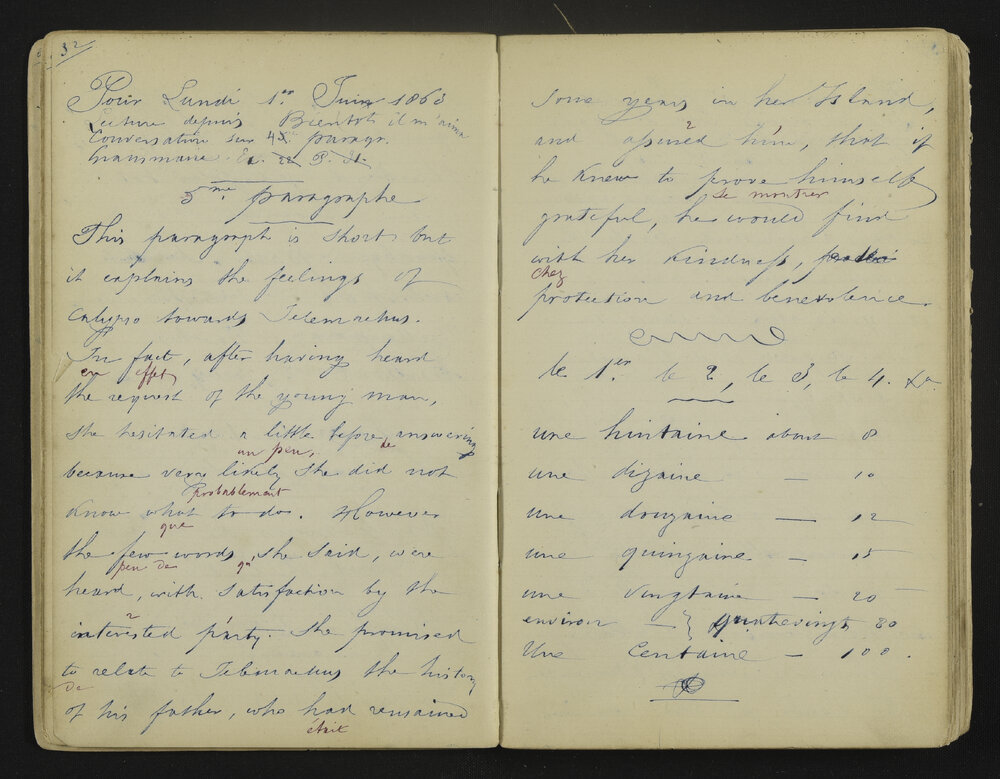 32
Pour Lundi 1er Juin 1863
Lecture depuis Bientôt il m'aima
Conversation sur 45. paragr.
Grammaire Ex. 22 P. 21.
5me paragraphe
This paragraph is short but
it explains the feelings of
Calypso towards Telemachus.
In fact, after having heard
en effet
the request of the young man,
she hesitated a little before answering
un peu, de
because very likely she did not
Probablement
know what to do. However
que
the few words, she said, were
peu de qu'
heard, with satisfaction by the
interested party. She promised
to relate to Telemachus the history
de
of his father, who had remained
était
some years in her Island,
and assured him, that if
he knew to prove himself
se montrer
grateful, he would find
with her kindness,
chez
protection and benevolence.
le 1er. le 2, le 3, le 4. &a.
une huitaine about 8
une dizaine — 10
une douzaine — 12
une quinzaine — 15
une vingtaine — 20
environ — } quatrevingts 80
Une Centaine — 100.